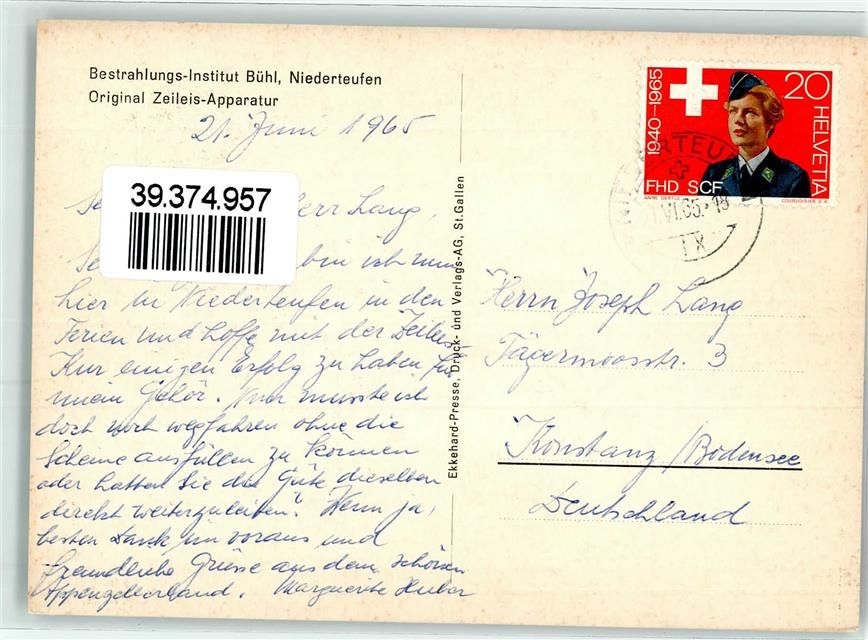 Bestrahlungs-Institut Bühl, Niederteufen
Original Zeileis-Apparatur
21. Juni 1965
39.374.957
Herr Lang,
bin ich nun
hier in Niederteufen in den
Ferien und hoffe mit der Zeileis-
Kur einigen Erfolg zu haben für
mein Gehör. Nun musste ich
doch noch wegfahren ohne die
Scheine ausfüllen zu können
oder hatten Sie die Güte dieselben
direkt weiterzuleiten? Wenn ja,
besten Dank im voraus und
freundliche Grüsse aus dem schönen
Appenzellerland. Marguerite Huber
Ekkehard-Presse, Druck- und Verlags-AG, St. Gallen
1940-1965
20
HELVETIA
FHD SCF
ANNE OERTLE
COURVOISIER S.A.
VI.65.-18
Herrn Joseph Lang
Jägermoosstr. 3
Konstanz / Bodensee
Deutschland